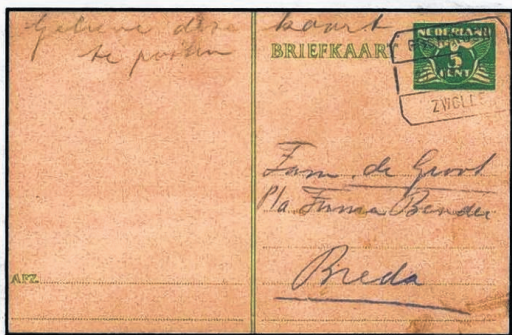 Gelieve deze kaart
te posten
BRIEFKAART
NEDERLAND
5
CENT
ZWOLLE
Fam. de Groot
P/a Firma Bender
Breda
AFZ.